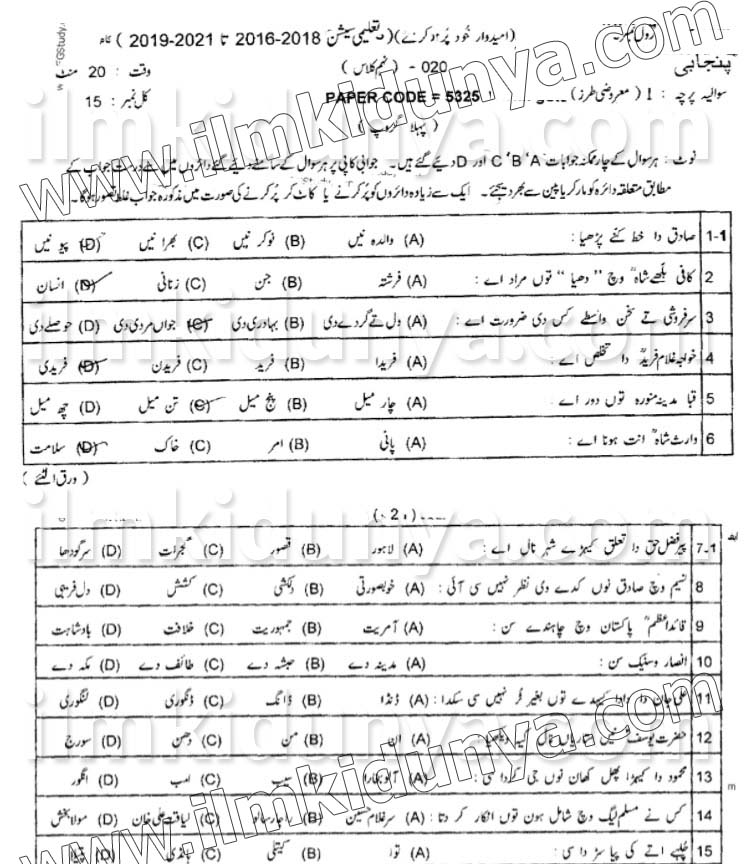 رول نمبر (امیدوار خود پُر کرے) (تعلیمی سیشن 2018-2016 تا 2021-2019)
پنجابی 020 - (نہم کلاس) وقت : 20 منٹ
سوالیہ پرچہ : I (معروضی طرز) PAPER CODE = 5325 کل نمبر : 15
(پہلا گروپ)
نوٹ : ہر سوال کے چار ممکنہ جوابات A ‘ B ‘ C اور D دیئے گئے ہیں۔ جوابی کاپی پر ہر سوال کے سامنے دیئے گئے دائروں میں سے درست جواب کے
مطابق متعلقہ دائرہ کو مارکر یا پین سے بھر دیجئے۔ ایک سے زیادہ دائروں کو پُر کرنے یا کاٹ کر پُر کرنے کی صورت میں مذکورہ جواب غلط تصور ہو گا۔
1-1 صادق دا خط کنے پڑھیا : (A) والدہ نیں (B) نوکر نیں (C) بھرا نیں (D) پیو نیں
2 کافی بلھے شاہ وچ " دھیا " توں مراد اے : (A) فرشتہ (B) جن (C) زنانی (D) انسان
3 سرفروشی تے سخن واسطے کس دی ضرورت اے : (A) دل تے گردے دی (B) بہادری دی (C) جواں مردی دی (D) حوصلے دی
4 خواجہ غلام فریدؒ دا تخلص اے : (A) فریدا (B) فرید (C) فریدن (D) فریدی
5 قبا مدینہ منورہ توں دور اے : (A) چار میل (B) پنج میل (C) تن میل (D) چھ میل
6 وارث شاہؒ انت ہونا اے : (A) پانی (B) امر (C) خاک (D) سلامت
(ورق الٹئے)
(2)
7-1 پیر فضل حق دا تعلق کیہڑے شہر نال اے : (A) لاہور (B) قصور (C) گجرات (D) سرگودھا
8 نسیم وچ صادق نوں کدے وی نظر نہیں سی آئی : (A) خوبصورتی (B) دلکشی (C) کشش (D) دل فریبی
9 قائداعظمؒ پاکستان وچ چاہندے سن : (A) آمریت (B) جمہوریت (C) خلافت (D) بادشاہت
10 انصار وسنیک سن : (A) مدینہ دے (B) حبشہ دے (C) طائف دے (D) مکہ دے
11 علی جان دا دادا کیہدے توں بغیر ٹر نہیں سی سکدا : (A) ڈنڈا (B) ڈانگ (C) ڈنگوری (D) لنگوری
12 حضرت یوسف (A) ان (B) من (C) دھن (D) سورج
13 محمود دا کیہڑا پھل کھان نوں جی کردا سی : (A) آلو بخارا (B) سیب (C) امب (D) انگور
14 کس نے مسلم لیگ وچ شامل ہون توں انکار کر دتا : (A) سر غلام حسین (B) (C) لیاقت علی خان (D) مولا بخش
15 چلہے اتے کی پیا سڑدا سی : (A) توا (B) کیتلی (C) ہانڈی (D)
www.ilmkidunya.com
ilmkidunya.com
ilmkidunya.com
ilmkidunya.com
ilmkidunya.com
www.ilmkidunya.com